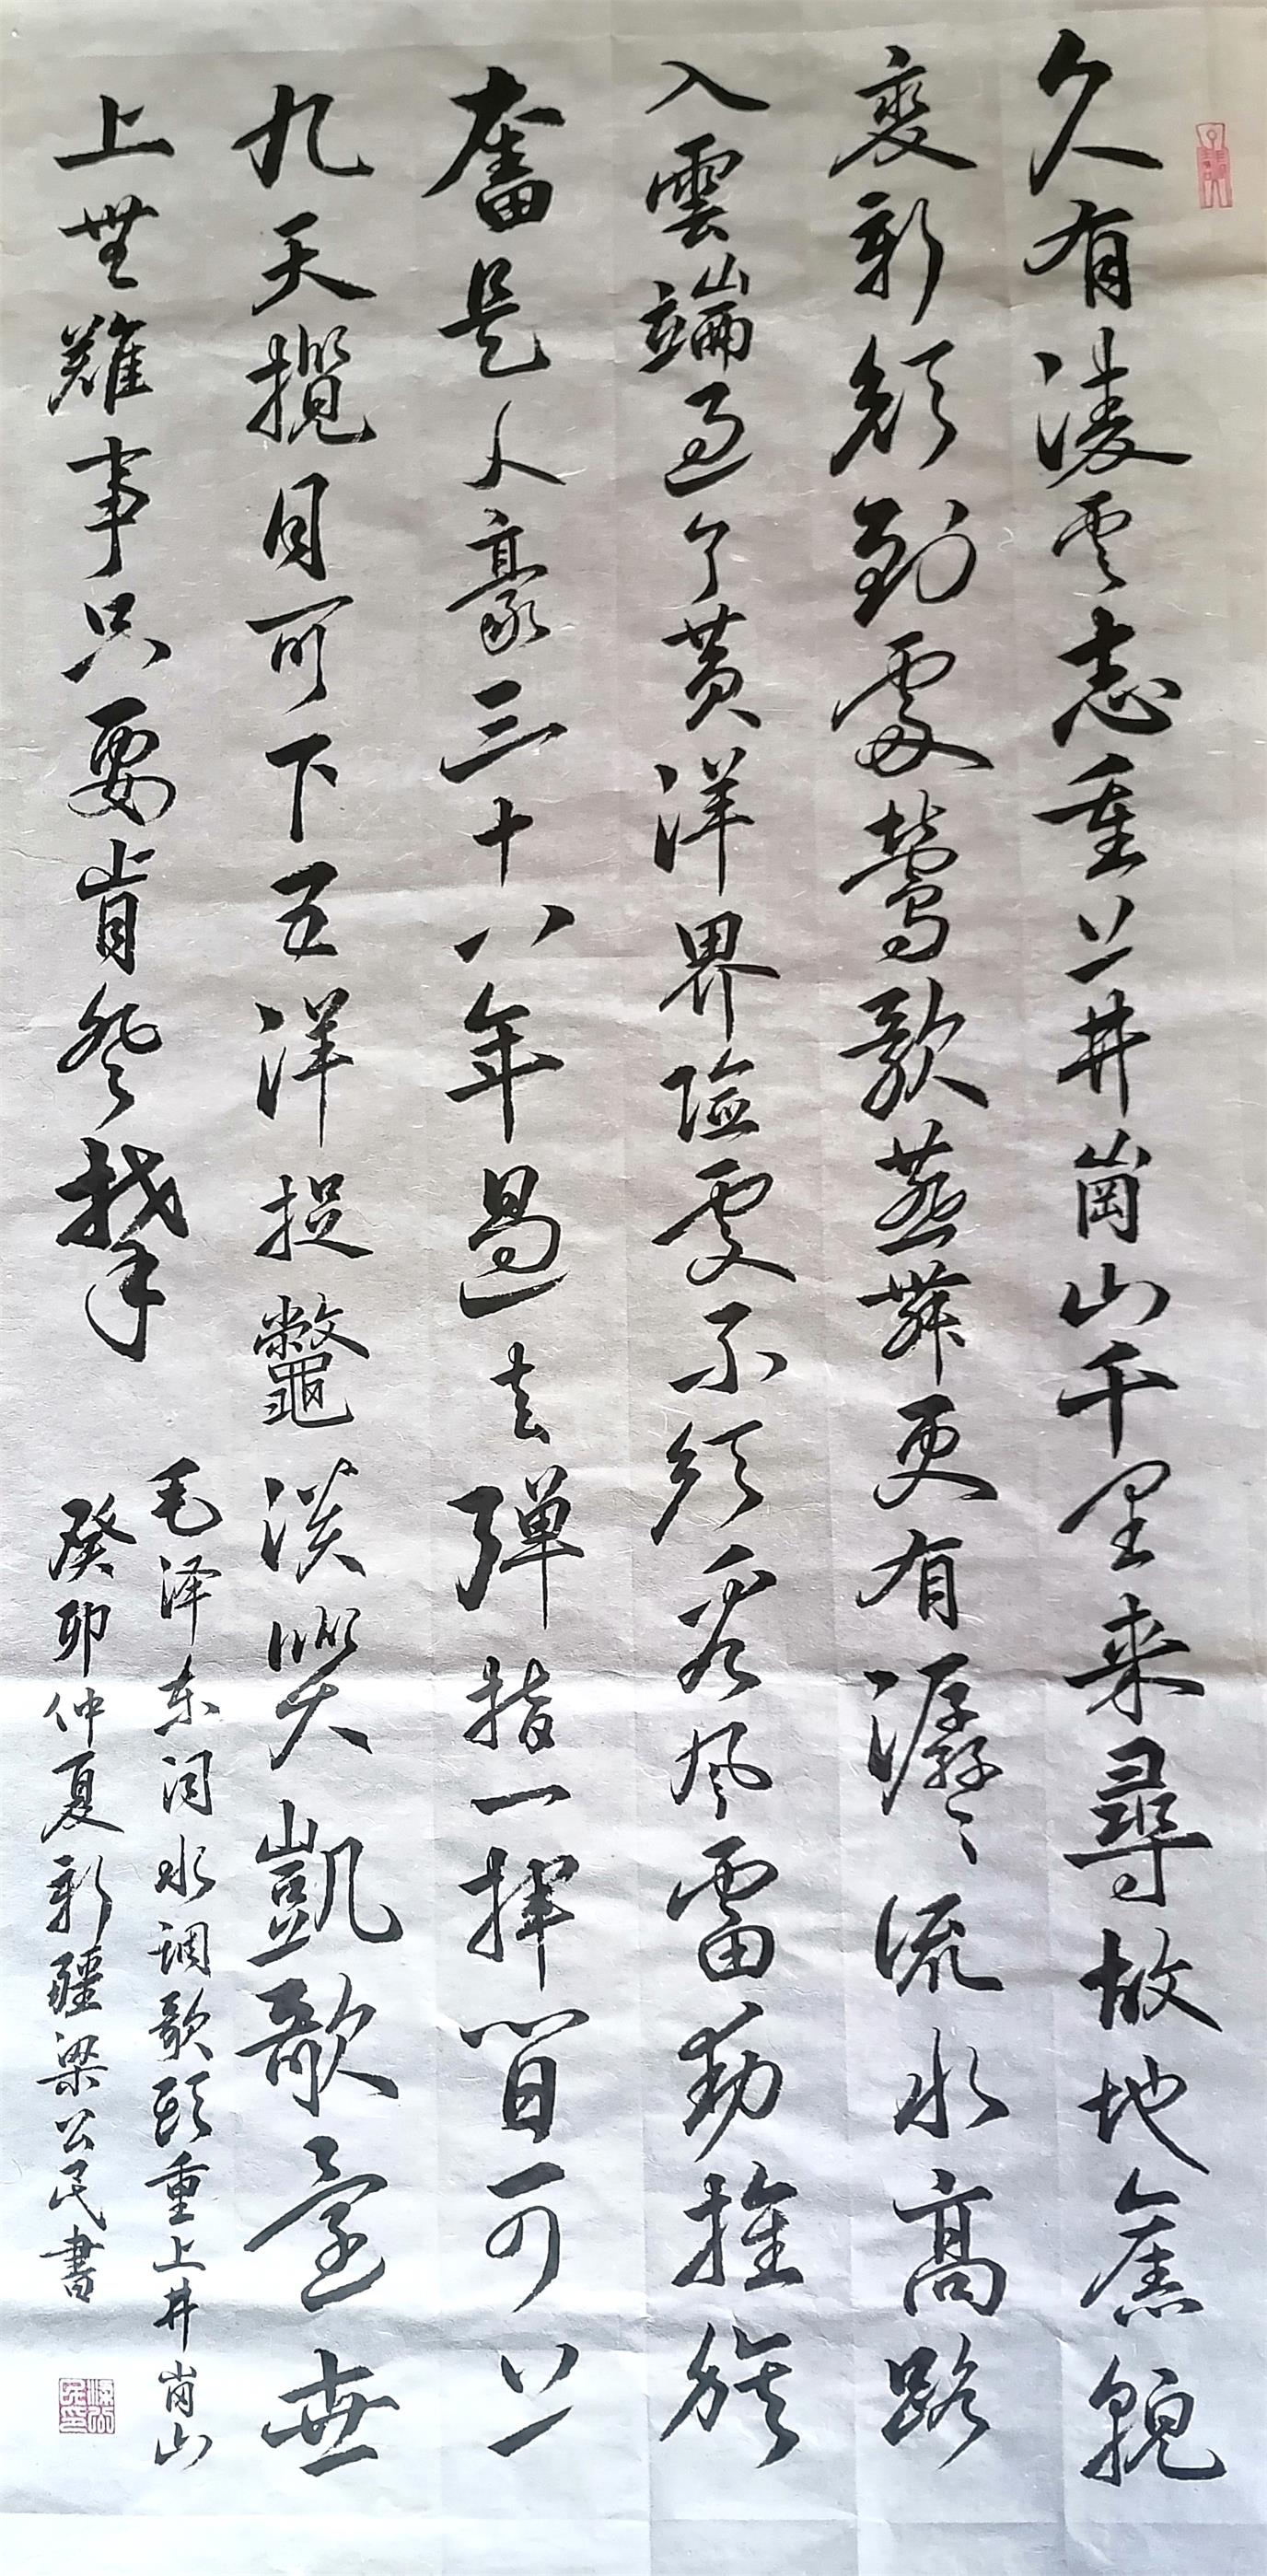 久有淩云志重上井崗山千里来尋故地舊貌
变新颜到處鶯歌燕舞更有潺々流水高路
入雲端过了黄洋界险處不须看风雷動旌旗
奮是人豪三十八年過去弹指一挥间可上
九天攬月可下五洋捉鼈谈笑凱歌還世
上無難事只要肯登攀
毛泽东词水调歌頭重上井岗山
癸卯仲夏新疆梁公民書